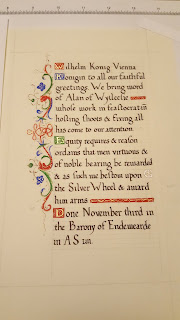 Wilhelm Konig Vienna
Konigin to all our faithful
greetings. We bring word
of Alan of Wyllestie
whose work in frastocratin
hosting shoots & foxing all
has come to our attention
Equity requires & reason
ordains that men virtuous &
of noble bearing be rewarded
& as such we bestow upon
the Silver Wheel & award
him arms
Done November third in
the Barony of Endeweande
in A S